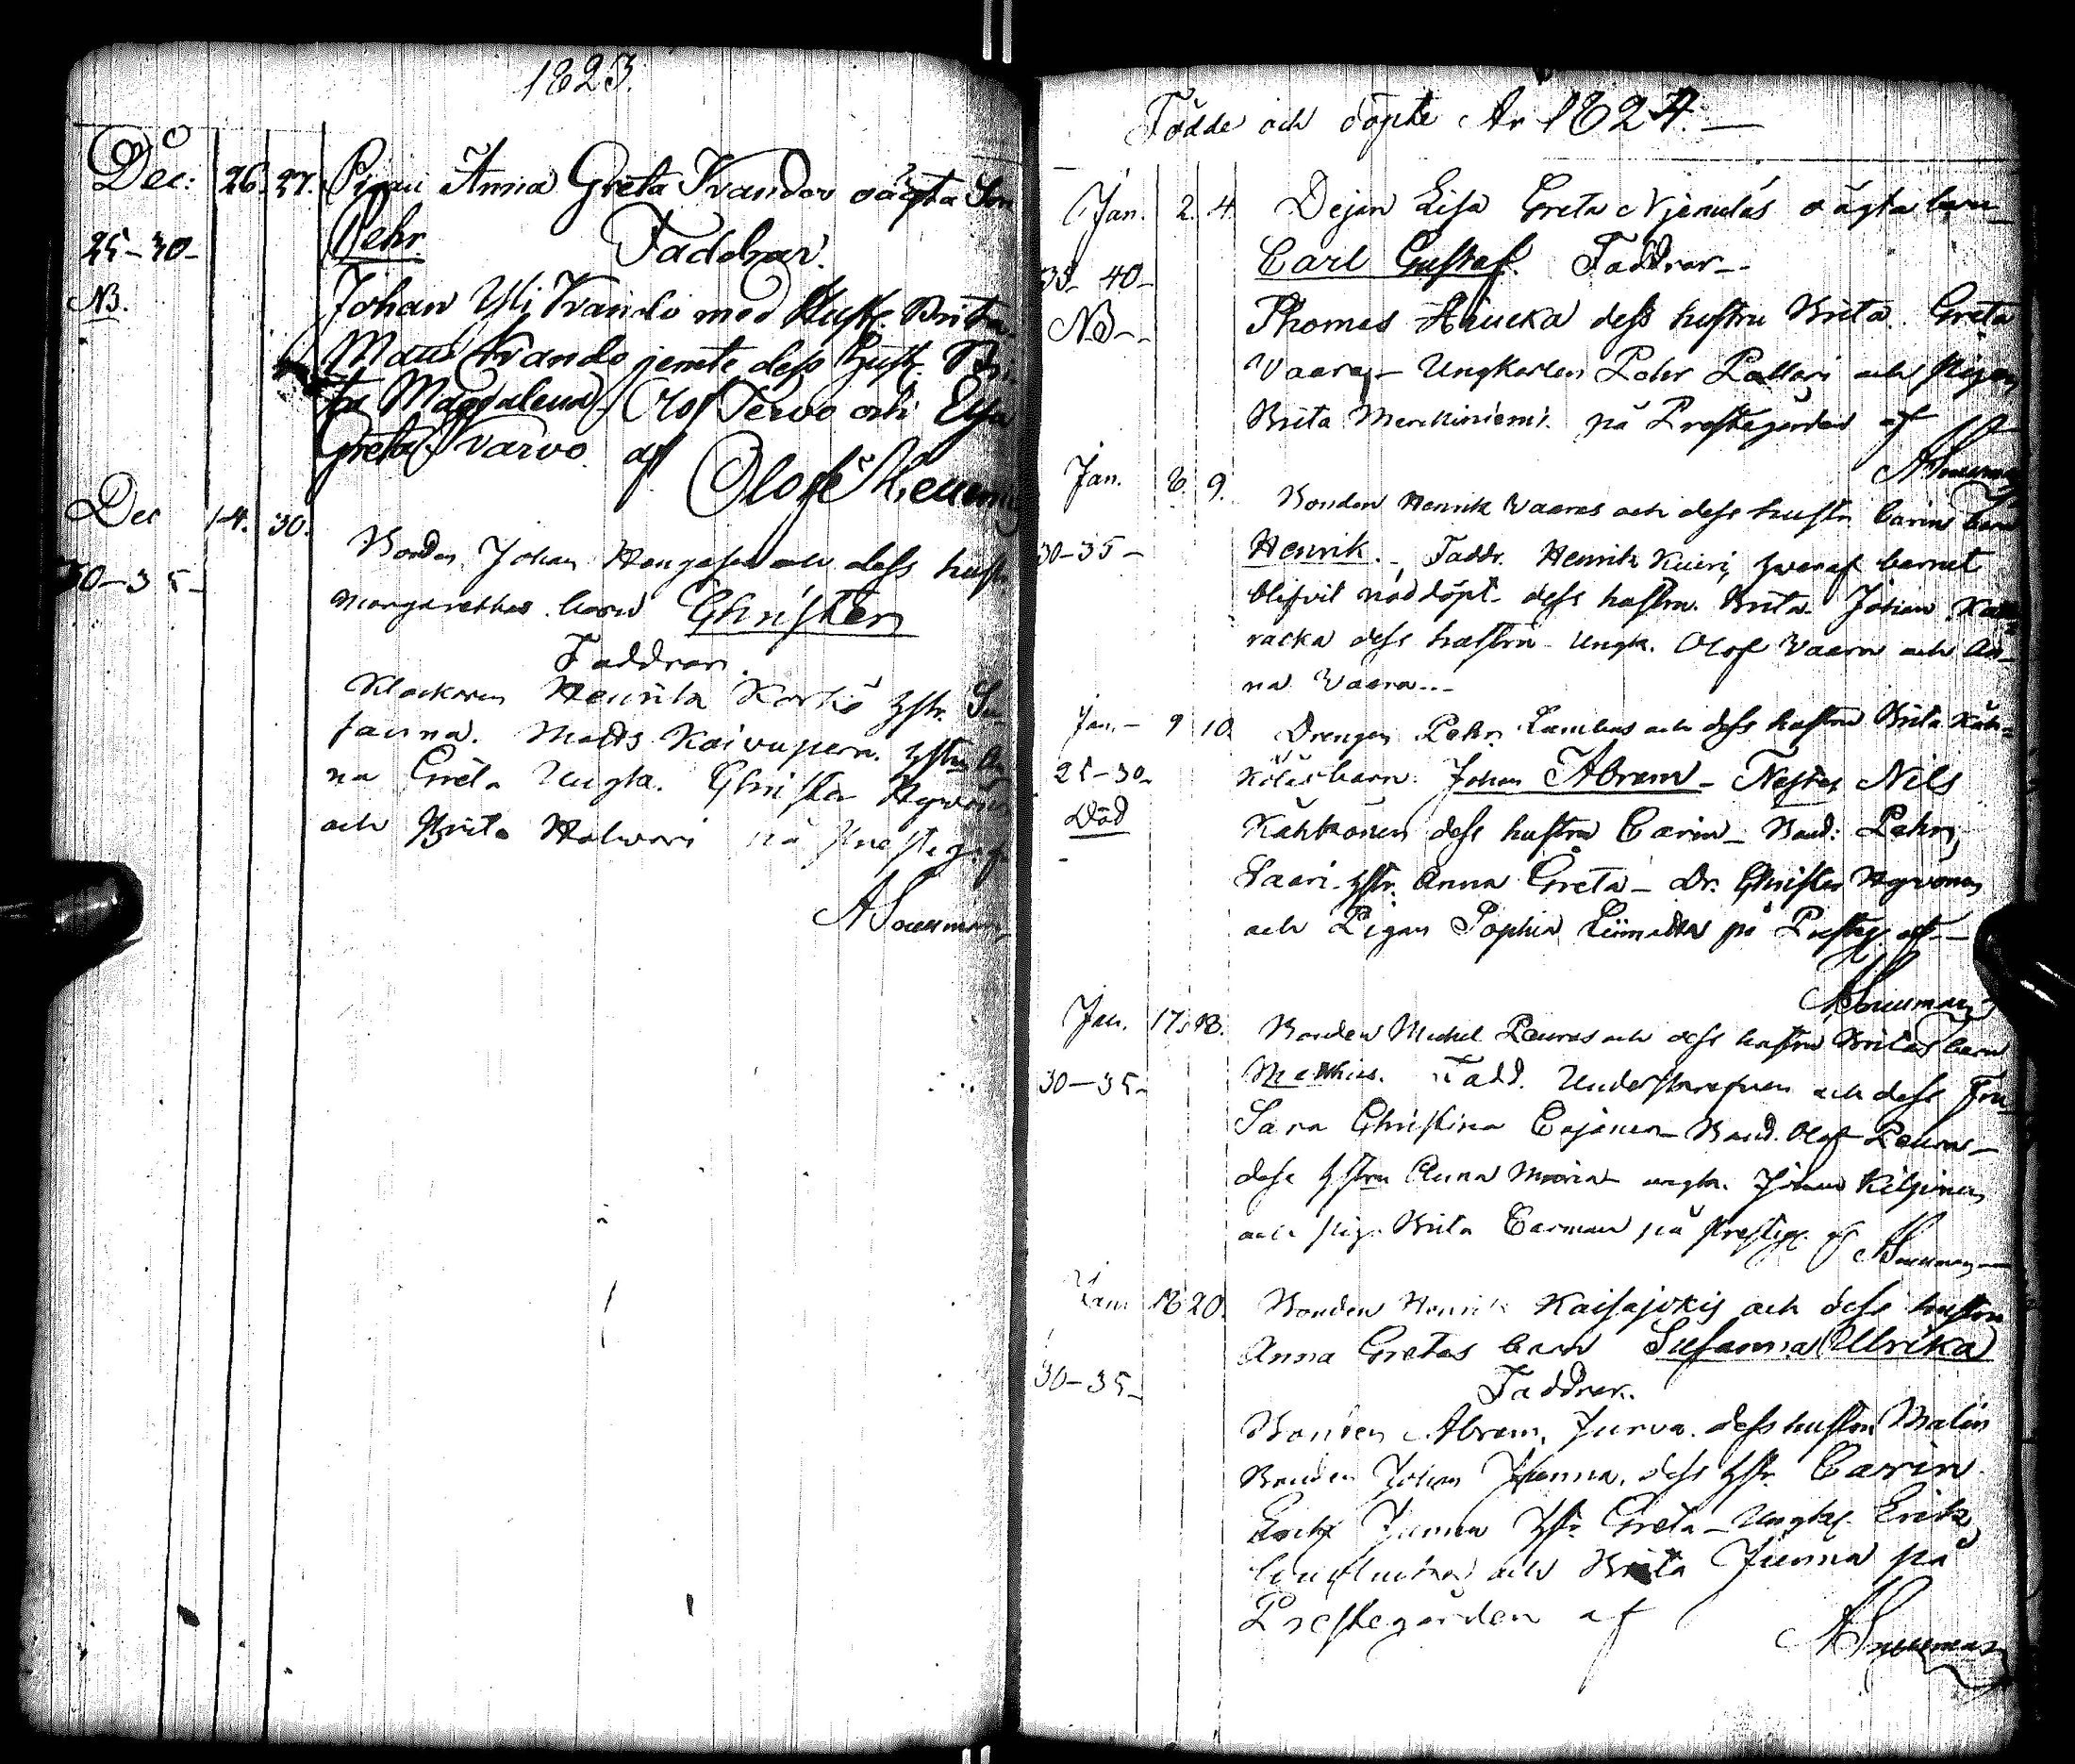 1823.
Dec: 26. 27. Pigan Anna Greta Kvandos oägta Son
25-30- Pehr. Faddrar.
NB. Johan Yli Kvando med Hustr. Brita
Matts Kvando jemte dess Hustr. Bri-
ta Magdalena, Olof Tervo och Elsa
Greta Varvo af
Olof
Dec 14. 30. Bonden Johan och dess hustr.
30-35- Margarethas barn Christer
Faddrar.
Klockaren Henrik hstr. Su-
sanna. Matts hstru An-
na Greta Ungk. Christer Hyvönen
och Brita Halvari på Presteg. af
A Snellman
Födde och döpte År 1824.
Jan. 2. 4. Dejan Lisa Greta oägta barn
35-40- Carl Gustaf. Faddrar-
NB- Thomas dess hustru Brita. Greta
Vaara- Ungkarlen Pehr Pallari och pigan
Brita på Prestegården af
A Snellman
Jan. 8. 9. Bonden Henrik Vaaras och dess hustru Carins barn
30-35- Henrik. Faddr. Henrik Kuivi, hvaraf barnet
blifvit nöddöpt. dess hustru Brita. Johan
racka dess hustru. Ungk. Olof Vaara och An-
na Vaara.-
Jan.- 9 10 Drengen Pehr och dess hustru Brita Käh-
25-30- barn. Johan Abram- Nils
Död Kähkönen dess hustru Carin- Bond: Pehr
Saari hstr. Anna Greta- Dr. Christer Hyvönen
och Pigan Sophia Liimatta på Presteg. af-
A Snellman
Jan. 17. 18. Bonden Michel Peuras och dess hustru Britas barn
30-35- Mathias. Fadd. och dess Fru
Sara Christina Cajanus- Bond. Olof Peura-
dess hstru Anna Maria- ungk. Johan Kilpinen
och pig. Brita på Presteg. af A Snellman-
Jan 18 20. Bonden Henrik Kaisajokis och dess hustru
Anna Gretas barn Susanna Ulrika
30-35- Faddrar.
Bonden Abram Jurva. dess hustru Malin
Bonden Johan Junna, dess hstr. Carin
Junna hstr. Greta- Ungk. Erik
och Brita Junna på
Prestegården af
A Snellman